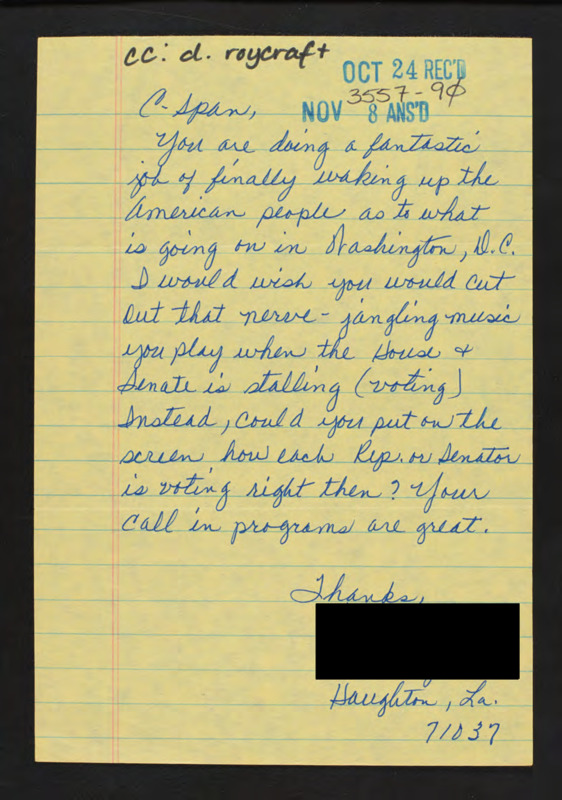 cc: d. roycraft
OCT 24 REC'D
3557-90
NOV 8 ANS'D
C-Span,
You are doing a fantastic
job of finally waking up the
American people as to what
is going on in Washington, D.C.
I would wish you would cut
out that nerve-jangling music
you play when the House &
Senate is stalling (voting)
Instead, could you put on the
screen how each Rep. or Senator
is voting right then? Your
call in programs are great.
Thanks,
Haughton, La.
71037